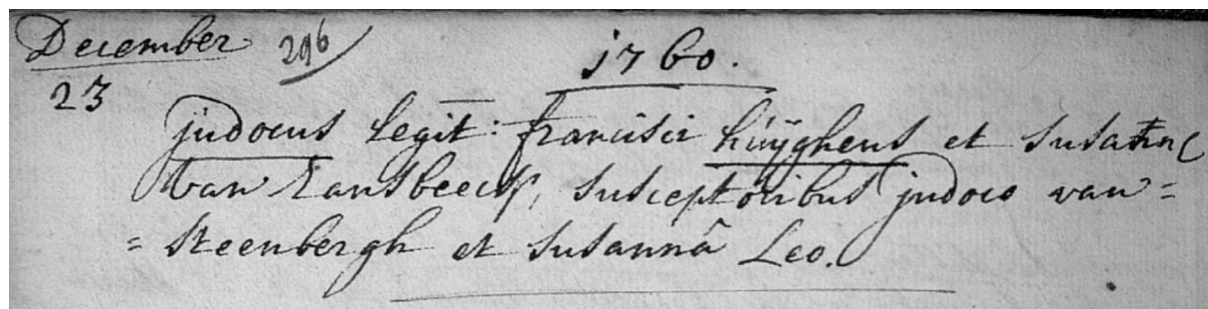 December 296
1760.
23
judocus legit: francisci huÿghens et Susannæ
van Ransbeeck, susceptoribus judoco van=
=Steenbergh et Susannâ Leo.